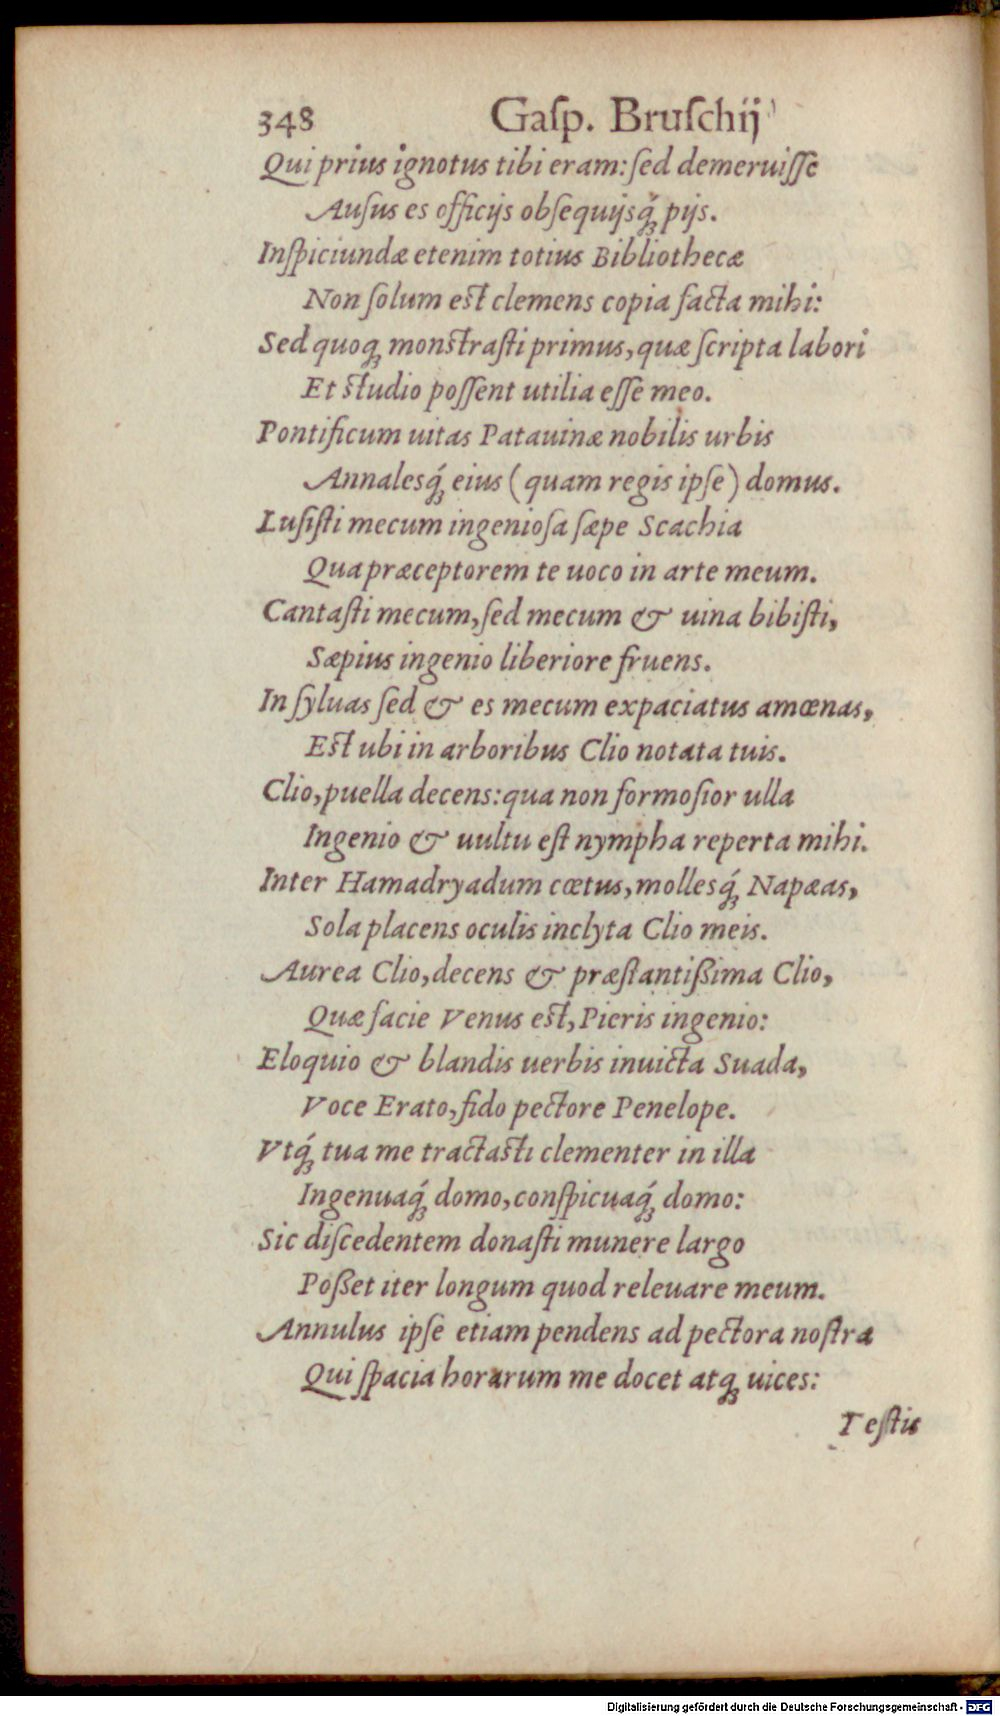 348 Gaſp. Bruſchij
Qui prius ignotus tibi eram: ſed demeruiſſe
Auſus es officijs obſequijsq́ꝫ pijs.
Inſpiciundæ etenim totius Bibliothecæ
Non ſolum eſt clemens copia facta mihi:
Sed quoqꝫ monſtraſti primus, quæ ſcripta labori
Et ſtudio poſſent utilia eſſe meo.
Pontificum uitas Patauinæ nobilis urbis
Annalesq́ꝫ eius (quam regis ipſe) domus.
Luſiſti mecum ingenioſa ſæpe Scachia
Qua præceptorem te uoco in arte meum.
Cantaſti mecum, ſed mecum & uina bibiſti,
Sæpius ingenio liberiore fruens.
In ſyluas ſed & es mecum expaciatus amœnas,
Eſt ubi in arboribus Clio notata tuis.
Clio, puella decens: qua non formoſior ulla
Ingenio & uultu eſt nympha reperta mihi.
Inter Hamadryadum cœtus, mollesq́ꝫ Napæas,
Sola placens oculis inclyta Clio meis.
Aurea Clio, decens & præſtantißima Clio,
Quæ facie Venus eſt, Pieris ingenio:
Eloquio & blandis uerbis inuicta Suada,
Voce Erato, fido pectore Penelope.
Vtq́ꝫ tua me tractaſti clementer in illa
Ingenuaq́ꝫ domo, conſpicuaq́ꝫ domo:
Sic diſcedentem donaſti munere largo
Poßet iter longum quod releuare meum.
Annulus ipſe etiam pendens ad pectora noſtra
Qui ſpacia horarum me docet atqꝫ uices:
Teſtis
Digitalisierung gefördert durch die Deutsche Forschungsgemeinschaft - DFG